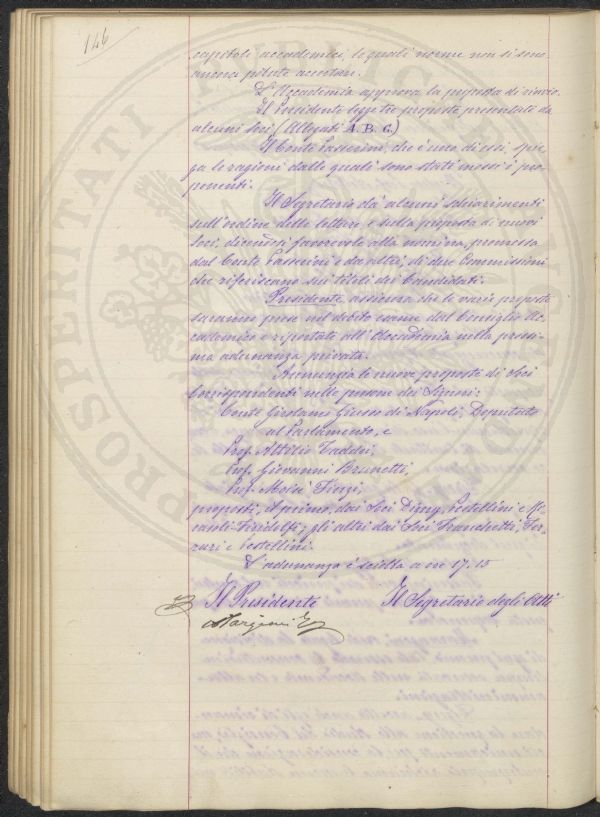 146
capitoli accademici, le quali norme non si sono
ancora potute accertare.
L'Accademia approva la proposta di rinvio.
Il Presidente legge tre proposte presentate da
alcuni Soci (Allegati A. B. C.)
Il Conte Passerini, che è uno di essi, spie-
ga le ragioni dalle quali sono stati mossi i pro-
ponenti.
Il Segretario dà alcuni schiarimenti
sull'ordine delle letture e sulla proposta di nuovi
Soci, dicendosi favorevole alla nomina, promossa
dal Conte Passerini e da altri, di due Commissioni
che riferiscano sui titoli dei Candidati.
Presidente assicura che le varie proposte
saranno prese nel debito esame dal Consiglio Ac-
cademico e riportate all'Accademia nella prossi-
ma adunanza privata.
Annunzia le nuove proposte di Soci
Corrispondenti nelle persone dei Signori:
Conte Girolamo Giusso di Napoli, Deputato
al Parlamento, e
Prof. Attilio Taddei,
Prof. Giovanni Brunetti,
Prof. Moisè Finzi,
proposti, il primo, dai Soci Digny, Pestellini e
gli altri dai Soci Franchetti, Fer-
rari e Pestellini.
L'adunanza è sciolta a ore 17.15
Il Presidente Il Segretario degli Atti
PROSPERITATI PUBLICAE